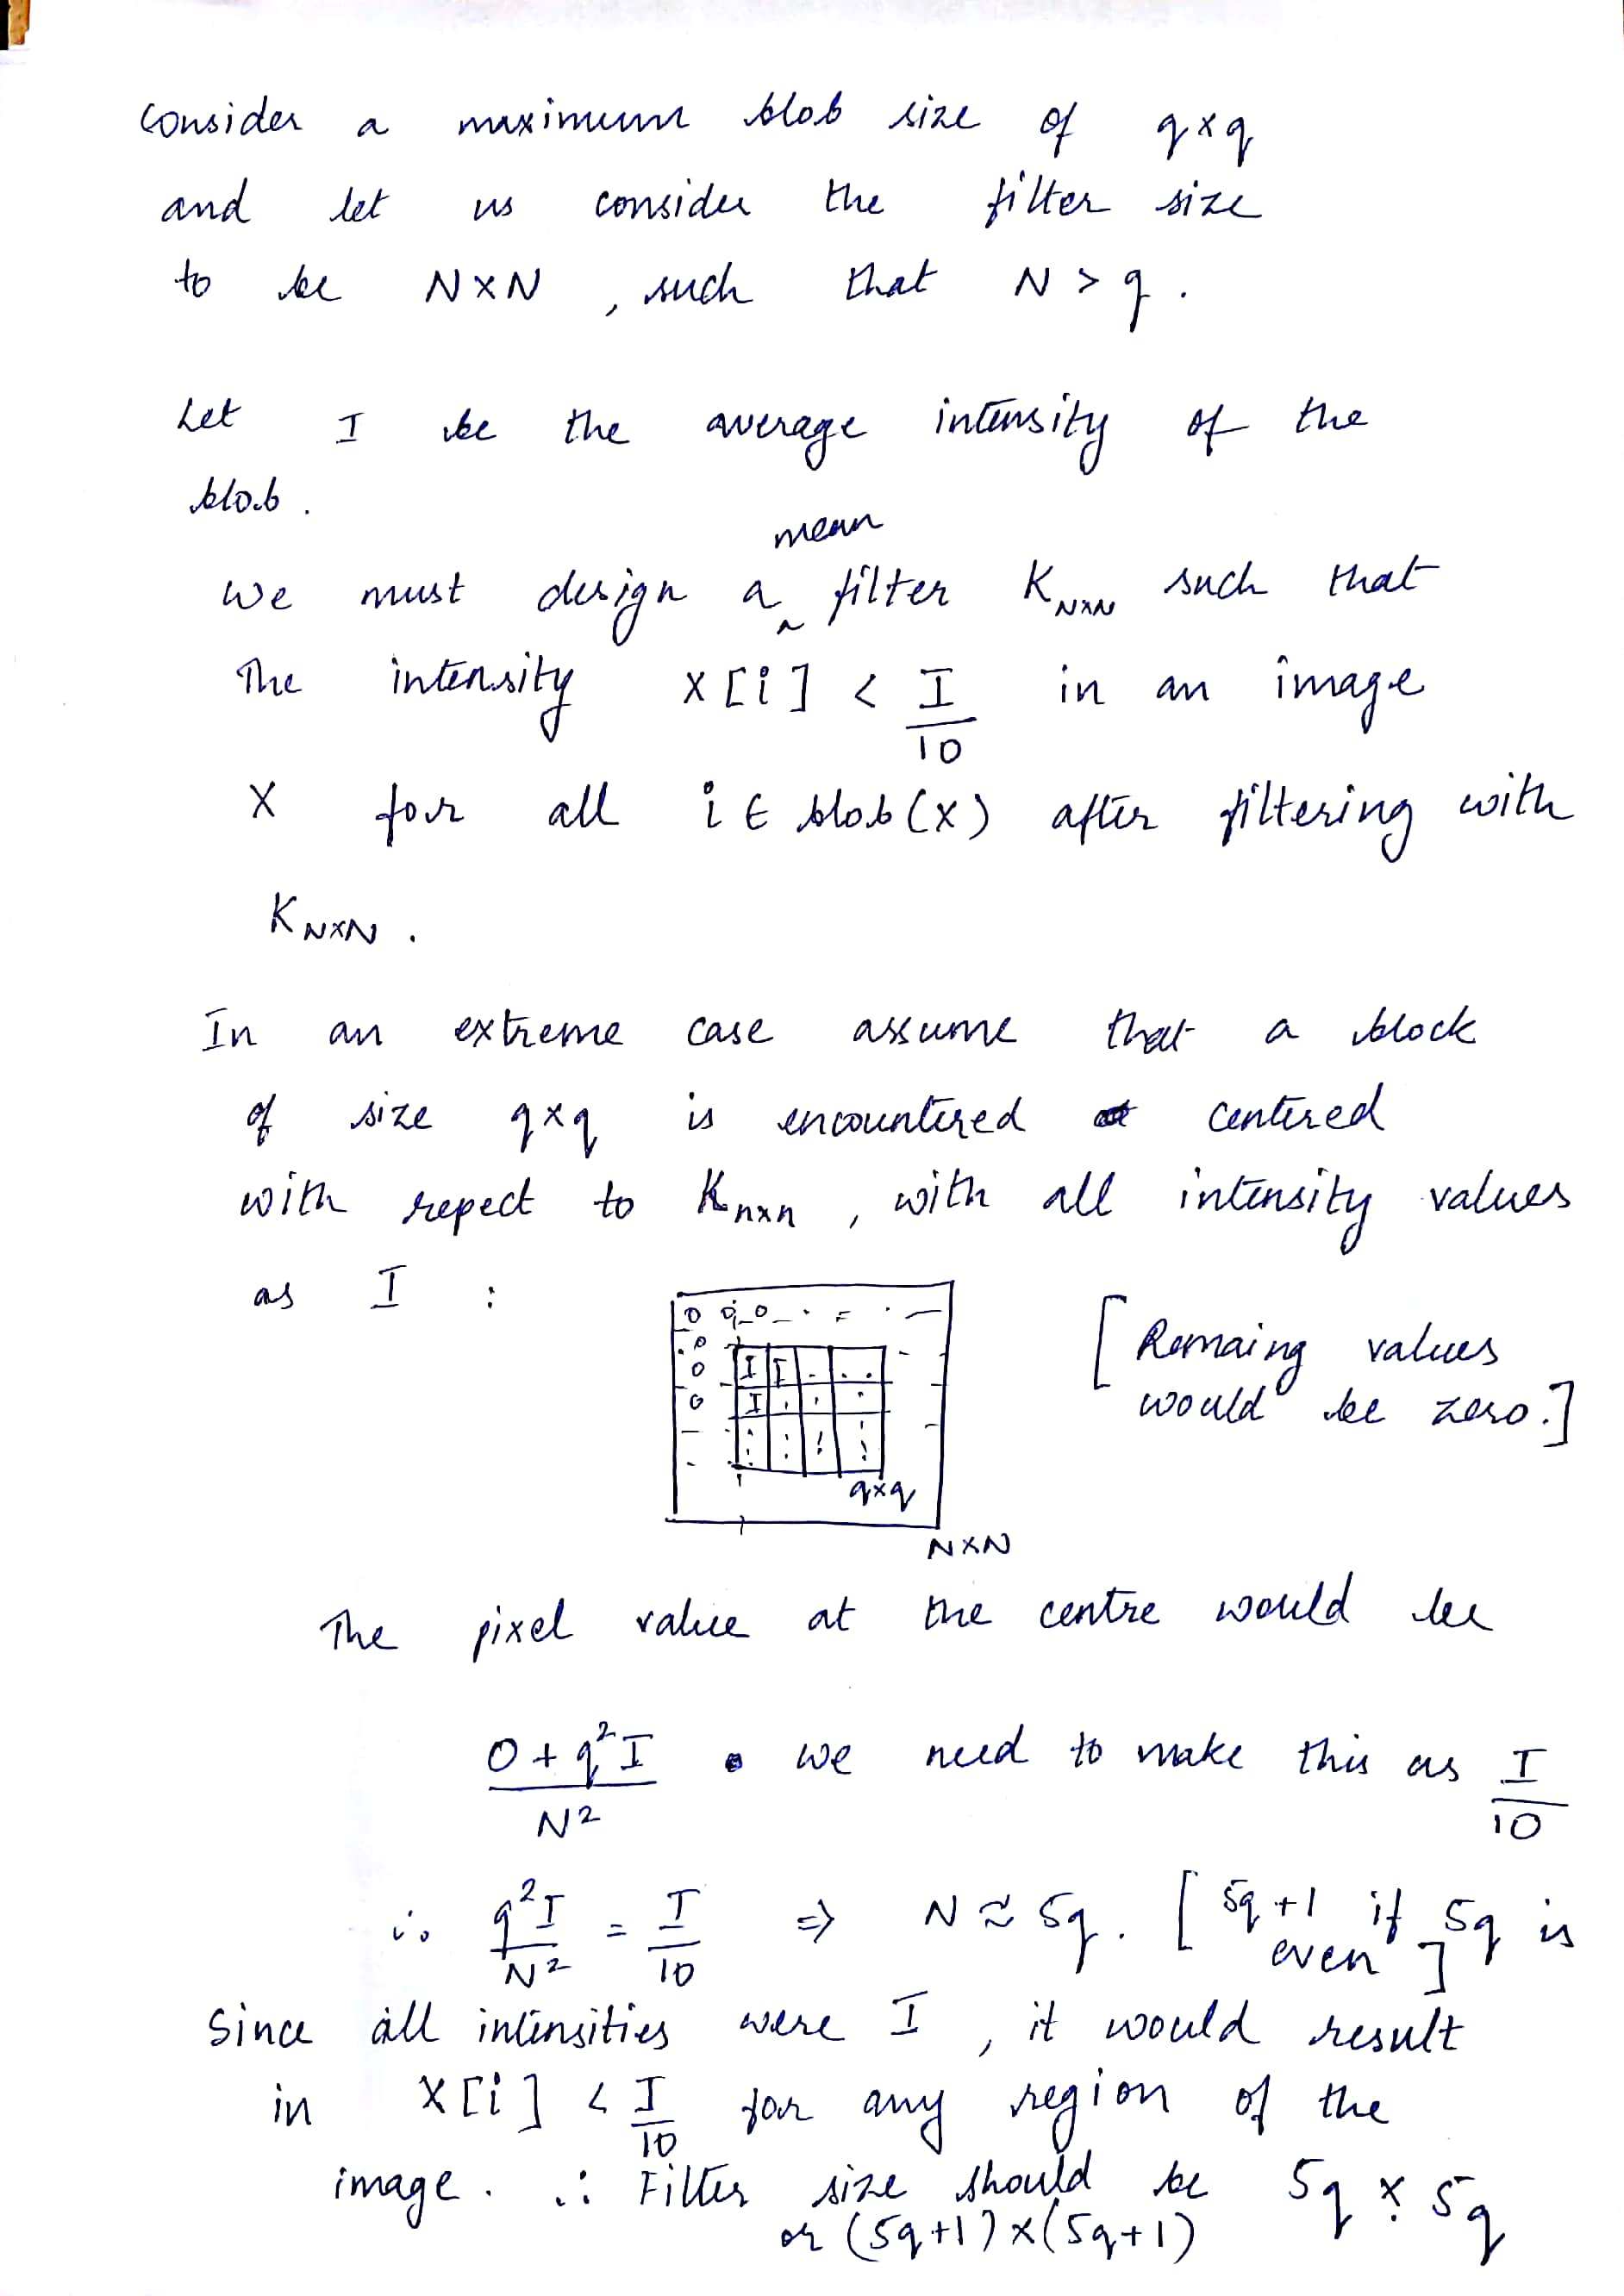 Consider a maximum blob size of q×q
and let us consider the filter size
to be N×N , such that N > q .
Let I be the average intensity of the
blob .
mean
we must design a ^ filter K N×N such that
The intensity X[i] < I/10 in an image
X for all i ∈ blob(X) after filtering with
K N×N .
In an extreme case assume that a block
of size q×q is encountered centered
with repect to K n×n , with all intensity values
as I :
0 0 0 . = . —
0
0 I I . . .
0 I . . .
[ Remaing values
would be zero.]
q×q
N×N
The pixel value at the centre would be
0 + q²I / N² . we need to make this as I/10
∴ q²I/N² = I/10 ⇒ N ≈ 5q . [ 5q+1 if 5q is
even ]
Since all intensities were I , it would result
in X[i] < I/10 for any region of the
image . ∴ Filter size should be 5q × 5q
or (5q+1)×(5q+1)